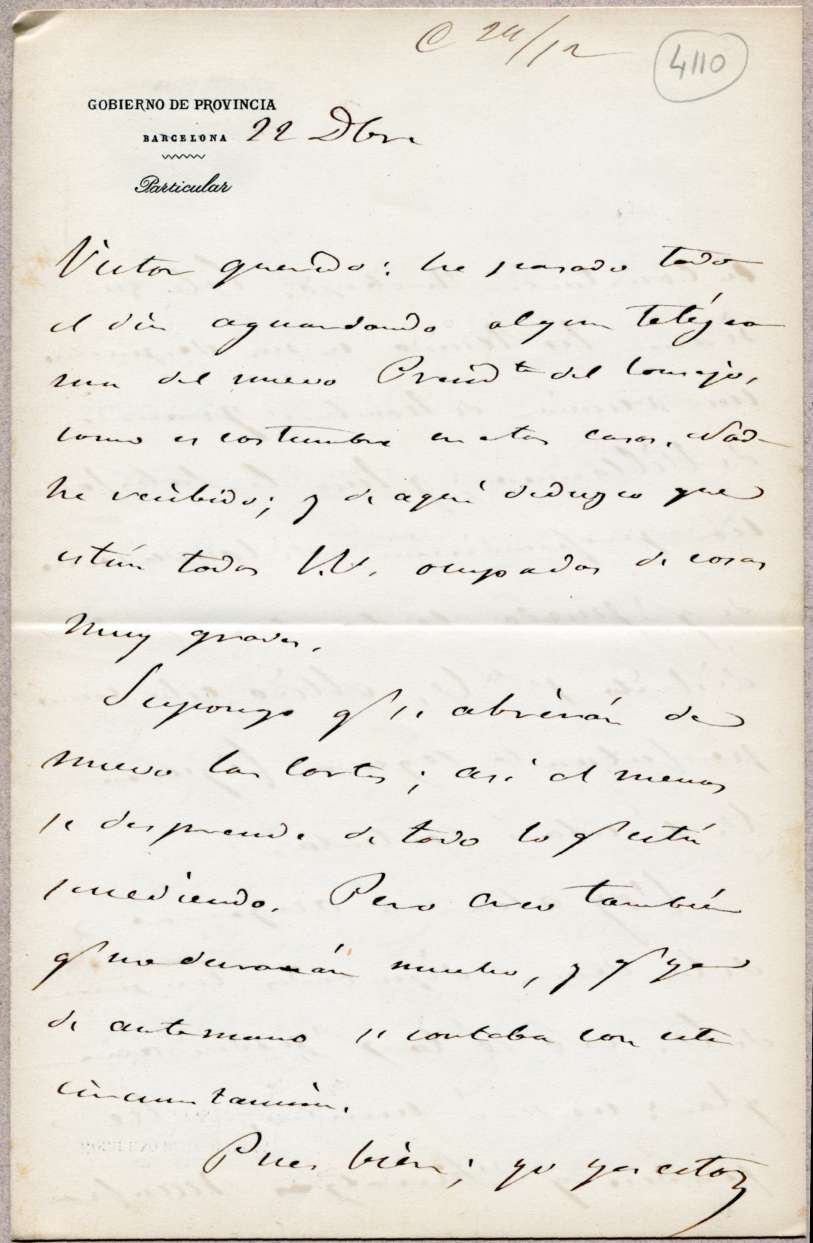 C 24/12
4110
GOBIERNO DE PROVINCIA
BARCELONA 22 Dbre
Particular
Victor querido: he pasado todo
el dia aguardando algun telégra
ma del nuevo Presidte del Consejo,
como es costumbre en estos casos. Nada
he recibido; y de aquí deduzco que
están todos V.V. ocupados de cosas
muy graves.
Supongo q' se abrirán de
nuevo las Cortes; así al menos
se desprende de todo lo q' está
sucediendo. Pero creo también
q' no durarán mucho, y q' ya
de antemano se contaba con esta
circunstancia.
Pues bien; yo ya estoy